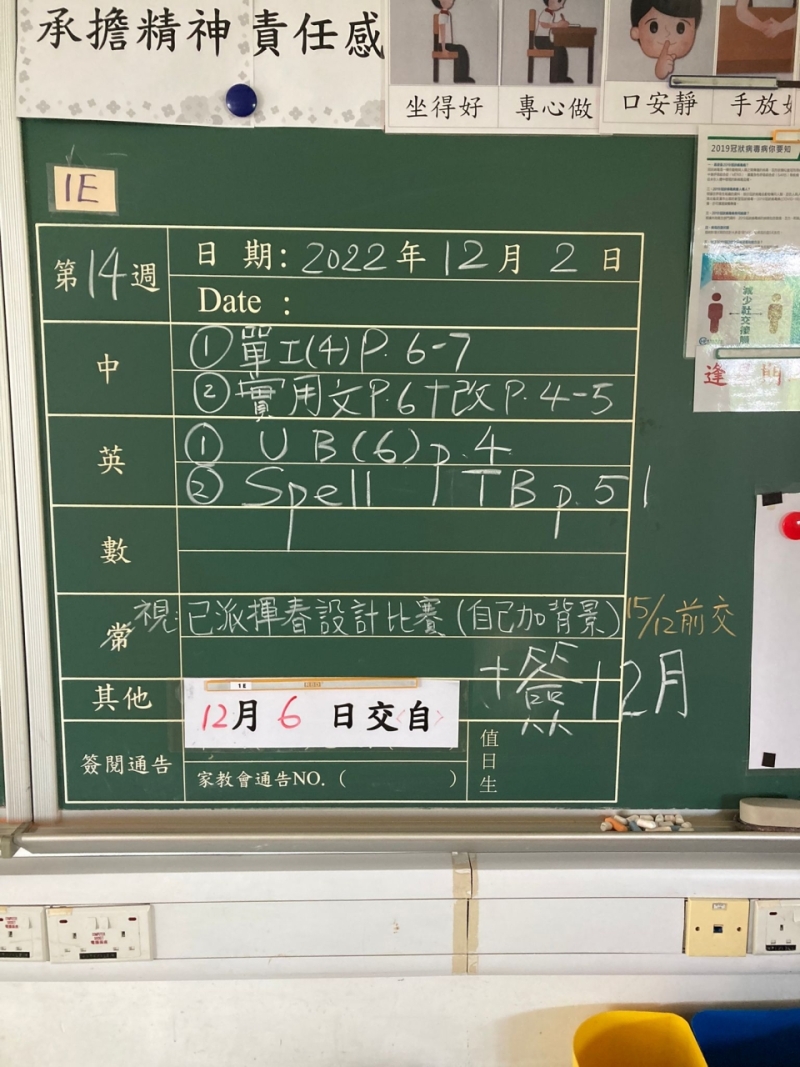 承擔精神 責任感
坐得好 專心做 口安靜 手放好
2019冠狀病毒病你要知
減少社交接觸
逢 門
1E
第14週
日期: 2022年12月2日
Date :
中
①單工(4)P.6-7
②實用文P.6+改P.4-5
英
① UB(6)p.4
② Spell 1 TB p.51
數
常
視:已派揮春設計比賽(自己加背景)15/12前交
+簽12月
其他
1E
12月6日交〈自〉
簽閱通告
家教會通告NO.( )
值日生